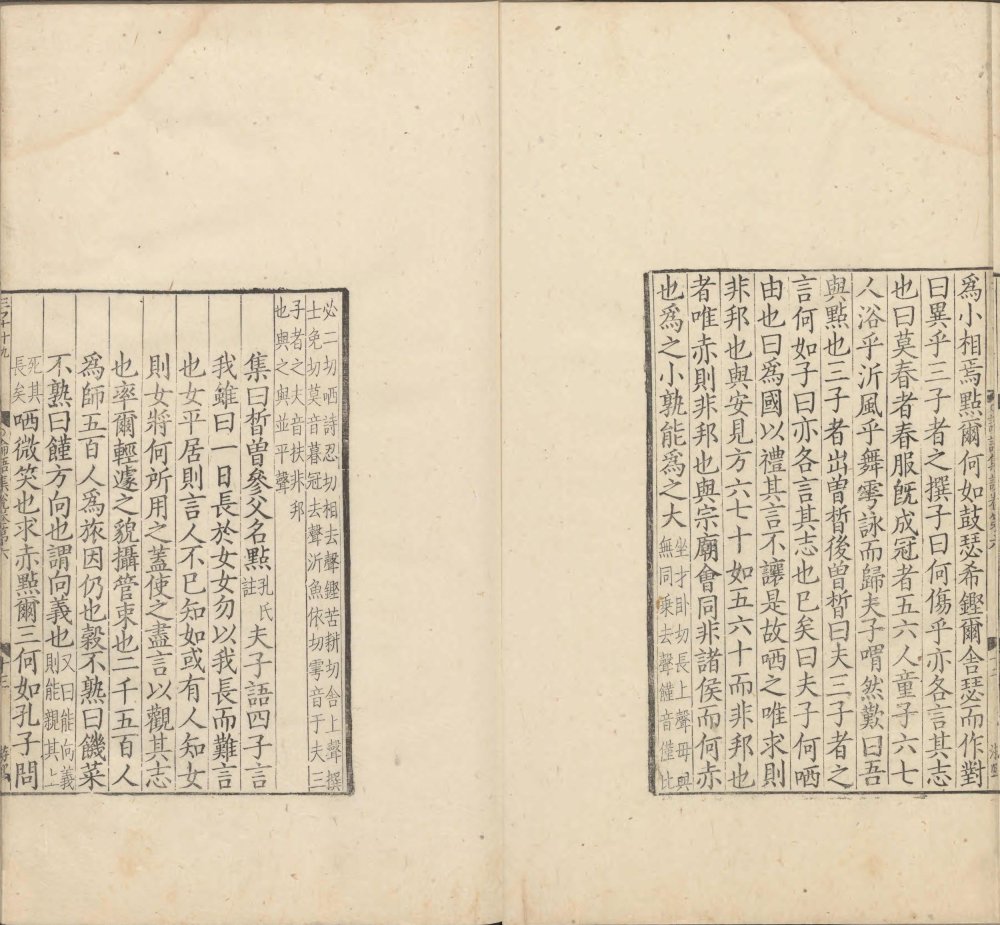 爲小相焉點爾何如鼓瑟希鏗爾舎瑟而作對
曰異乎三子者之撰子曰何傷乎亦各言其志
也曰莫春者春服旣成冠者五六人童子六七
人浴乎沂風乎舞雩詠而歸夫子喟然歎曰吾
與點也三子者出曾晳後曾晳曰夫三子者之
言何如子曰亦各言其志也已矣曰夫子何哂
由也曰爲國以禮其言不讓是故哂之唯求則
非邦也與安見方六七十如五六十而非邦也
者唯赤則非邦也與宗廟會同非諸侯而何赤
也爲之小孰能爲之大
坐才卧切長上聲毋與
無同乗去聲饉音僅比
必二切哂詩忍切相去聲鏗苦耕切舎上聲撰
士免切莫音暮冠去聲沂魚依切雩音于夫三
子者之夫音扶非邦
也與之與並平聲
集曰晳曽參父名點
孔氏
註
夫子語四子言
我雖曰一日長於女女勿以我長而難言
也女平居則言人不已知如或有人知女
則女將何所用之蓋使之盡言以觀其志
也率爾輕遽之貌攝管束也二千五百人
爲師五百人爲旅因仍也穀不熟曰饑菜
不熟曰饉方向也謂向義也
又曰能向義
則能親其上
死其
長矣
哂微笑也求赤點爾三何如孔子問